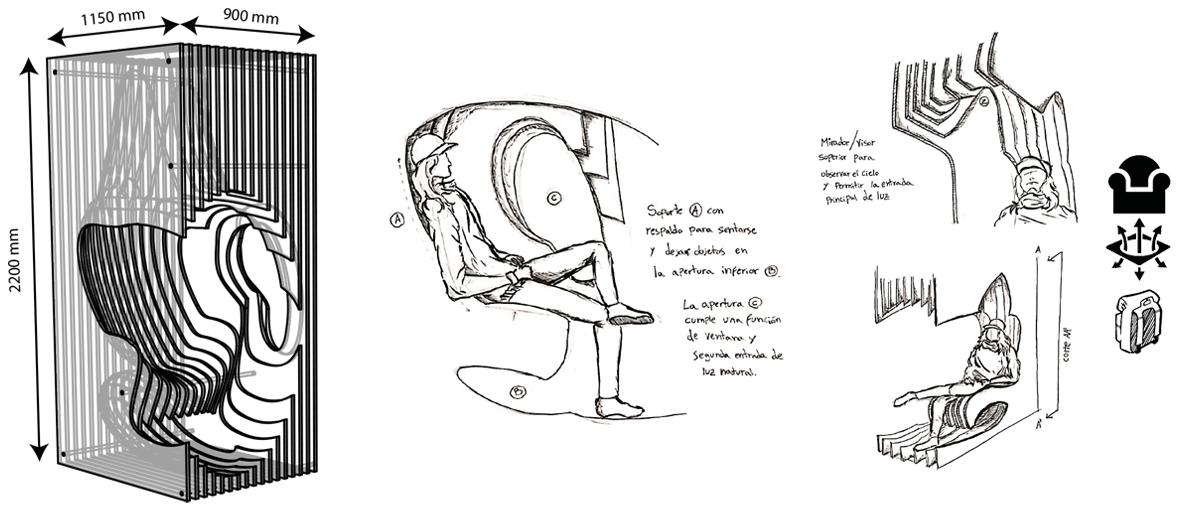 1150 mm
900 mm
2200 mm
A
C
B
Soporte A con
respaldo para sentarse
y dejar objetos en
la apertura inferior B.
La apertura C
cumple una función
de ventana y
segunda entrada de
luz natural.
Mirador/Visor
superior para
observar el cielo
y permitir la entrada
principal de luz
A
corte AA'
A'